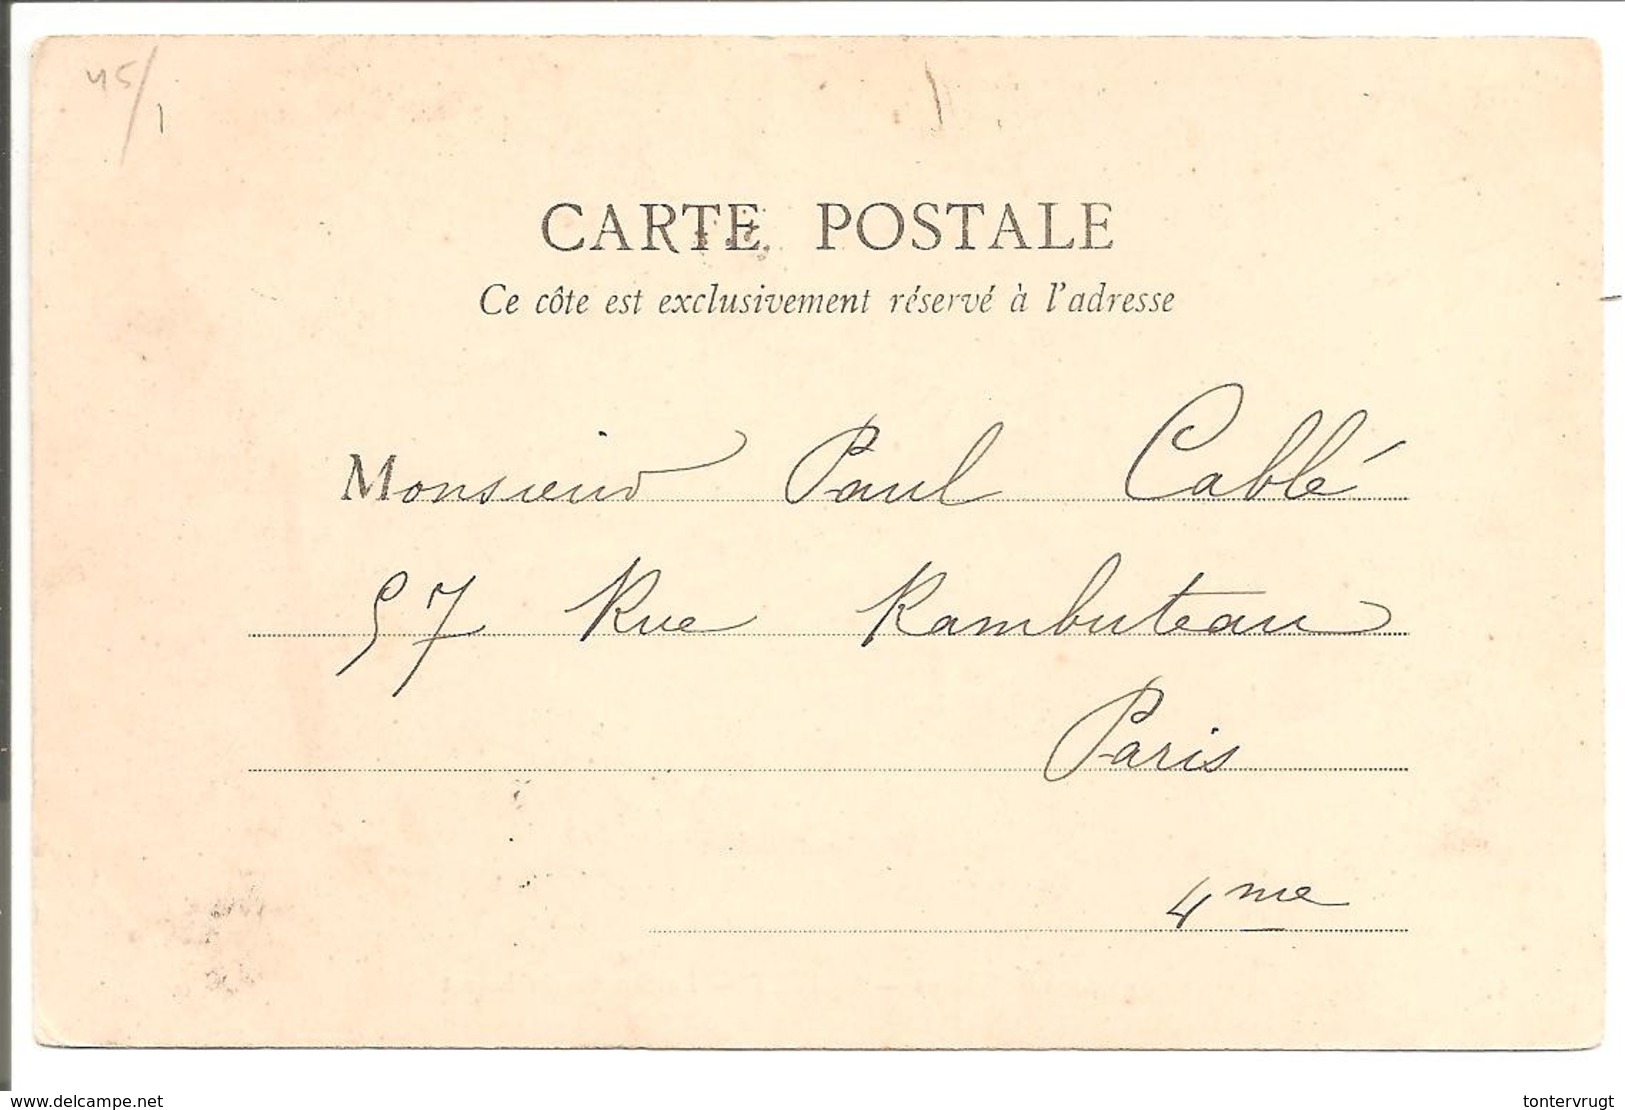 45/1
CARTE POSTALE
Ce côte est exclusivement réservé à l'adresse
Monsieur Paul Cablé
57 Rue Rambuteau
Paris
4me
www.delcampe.net
tontervrugt